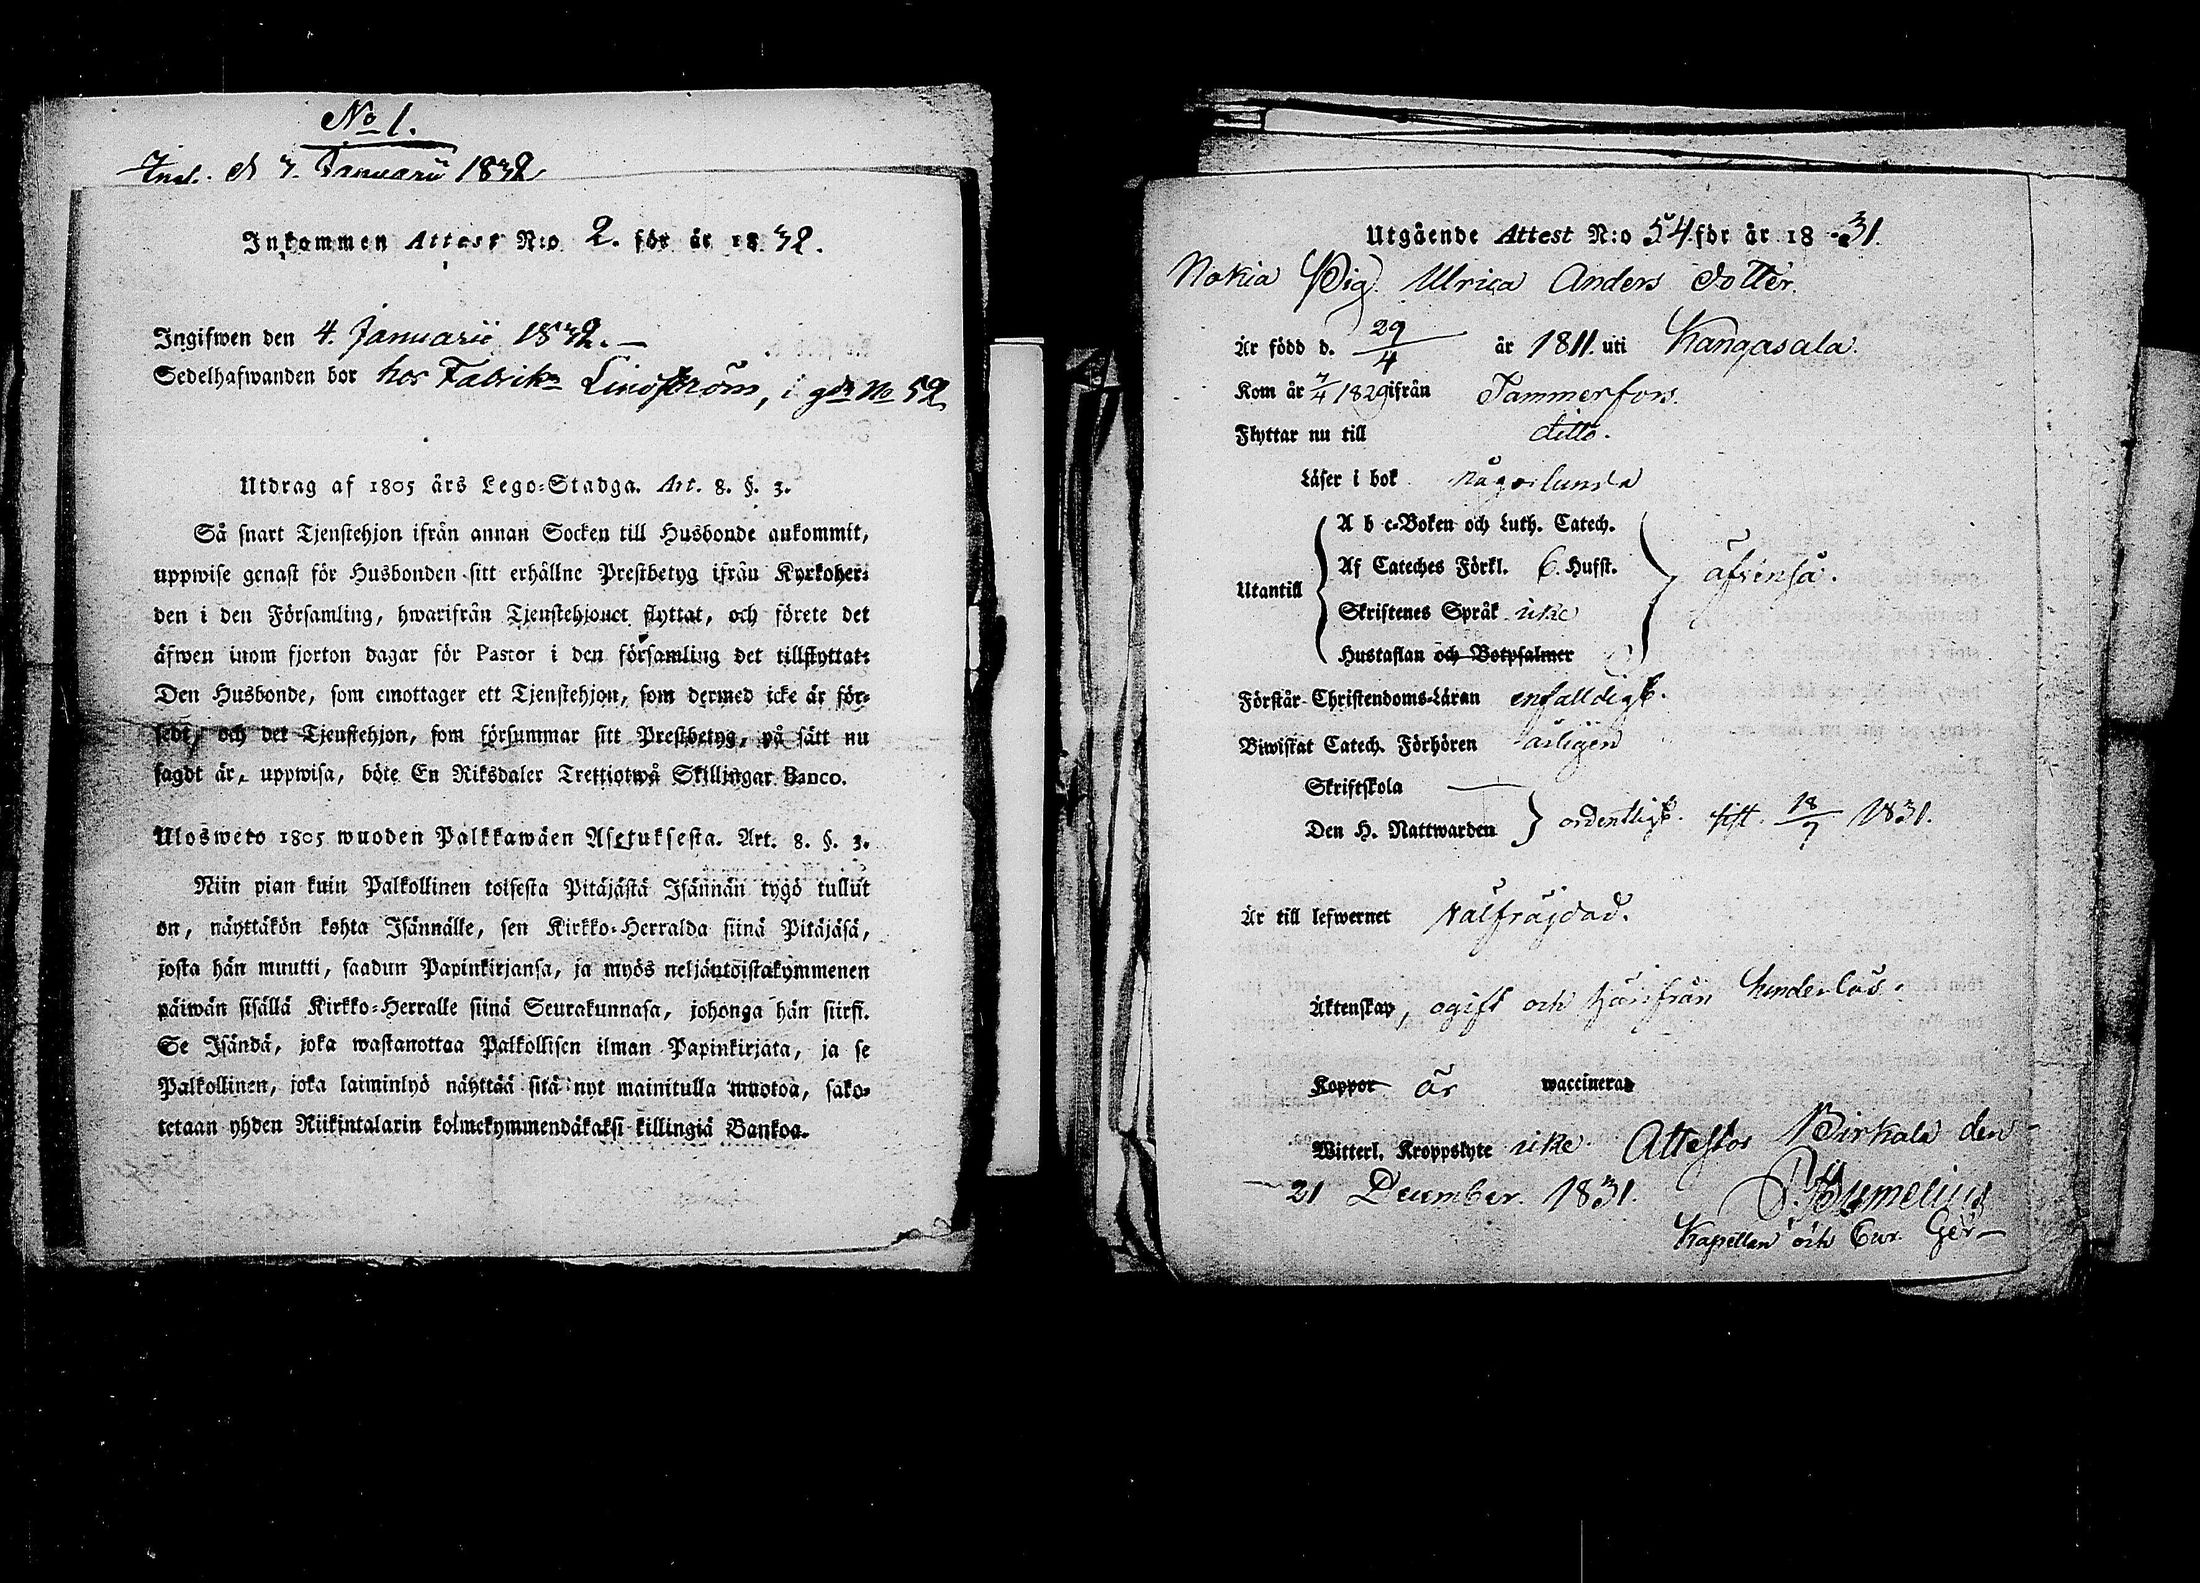 No 1.
Inl. d 7. Januarii 1832
Inkommen Attest N:o 2. för år 1832.
Ingifwen den 4. Januarii 1832.
Sedelhafwanden bor hos Fabrikn Lindström, i gdn No 52
Utdrag af 1805 års Lego-Stadga. Art. 8. §. 3.
Så snart Tjenstehjon ifrån annan Socken till Husbonde ankommit,
uppwise genast för Husbonden sitt erhållne Prestbetyg ifrån Kyrkoher-
den i den Församling, hwarifrån Tjenstehjonet flyttat, och förete det
äfwen inom fjorton dagar för Pastor i den församling det tillflyttat:
Den Husbonde, som emottager ett Tjenstehjon, som dermed icke är för-
sedt, och det Tjenstehjon, som försummar sitt Prestbetyg, på sätt nu
sagdt är, uppwisa, böte En Riksdaler Trettiotwå Skillingar Banco.
Ulosweto 1805 wuoden Palkkawäen Asetuksesta. Art. 8. §. 3.
Niin pian kuin Palkollinen toisesta Pitäjästä Isännän tygö tullut
on, näyttäkön kohta Isännälle, sen Kirkko-Herralda siinä Pitäjäsä,
josta hän muutti, saadun Papinkirjansa, ja myös neljäntoistakymmenen
päiwän sisällä Kirkko-Herralle siinä Seurakunnasa, johonga hän siirsi.
Se Isändä, joka wastanottaa Palkollisen ilman Papinkirjata, ja se
Palkollinen, joka laiminlyö näyttää sitä nyt mainitulla muotoa, sako-
tetaan yhden Riikintalarin kolmekymmendäkaksi killingiä Bankoa.
Utgående Attest N:o 54 för år 1831.
Nokia Pig. Ulrica Anders dotter.
Är född d. 29/4 år 1811. uti Kangasala.
Kom år 7/4 1829 ifrån Tammerfors.
Flyttar nu till ditto.
Läser i bok någorlunda
A b c-Boken och Luth. Catech.
Af Cateches Förkl. 6. Hufst.
Utantill äfvenså.
Skriftenes Språk icke
Hustaflan och Botpsalmer
Förstår Christendoms-Läran enfalldigt.
Biwistat Catech. Förhören årligen
Skriftskola
Den H. Nattwarden ordentligt. sist. 18/7 1831.
Är till lefwernet välfräjdad.
Äktenskap, ogift och härifrån hinderlös.
Koppor är waccinerad
Witterl. Kroppslyte icke. Attestor Birkala den
21 December. 1831.
Kapellan och Cur. Ger